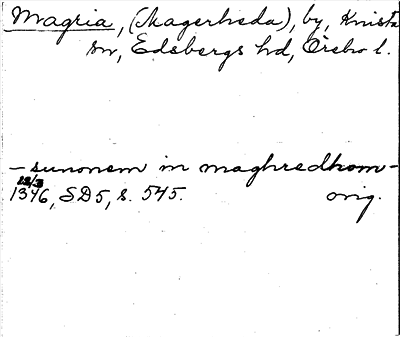 Magria, (Skagerheda), by, Knista
sn, Edsbergs hd, Örebro l.
- sunonem in maghredhom -
12/3
1346, SD5, s. 545. orig.